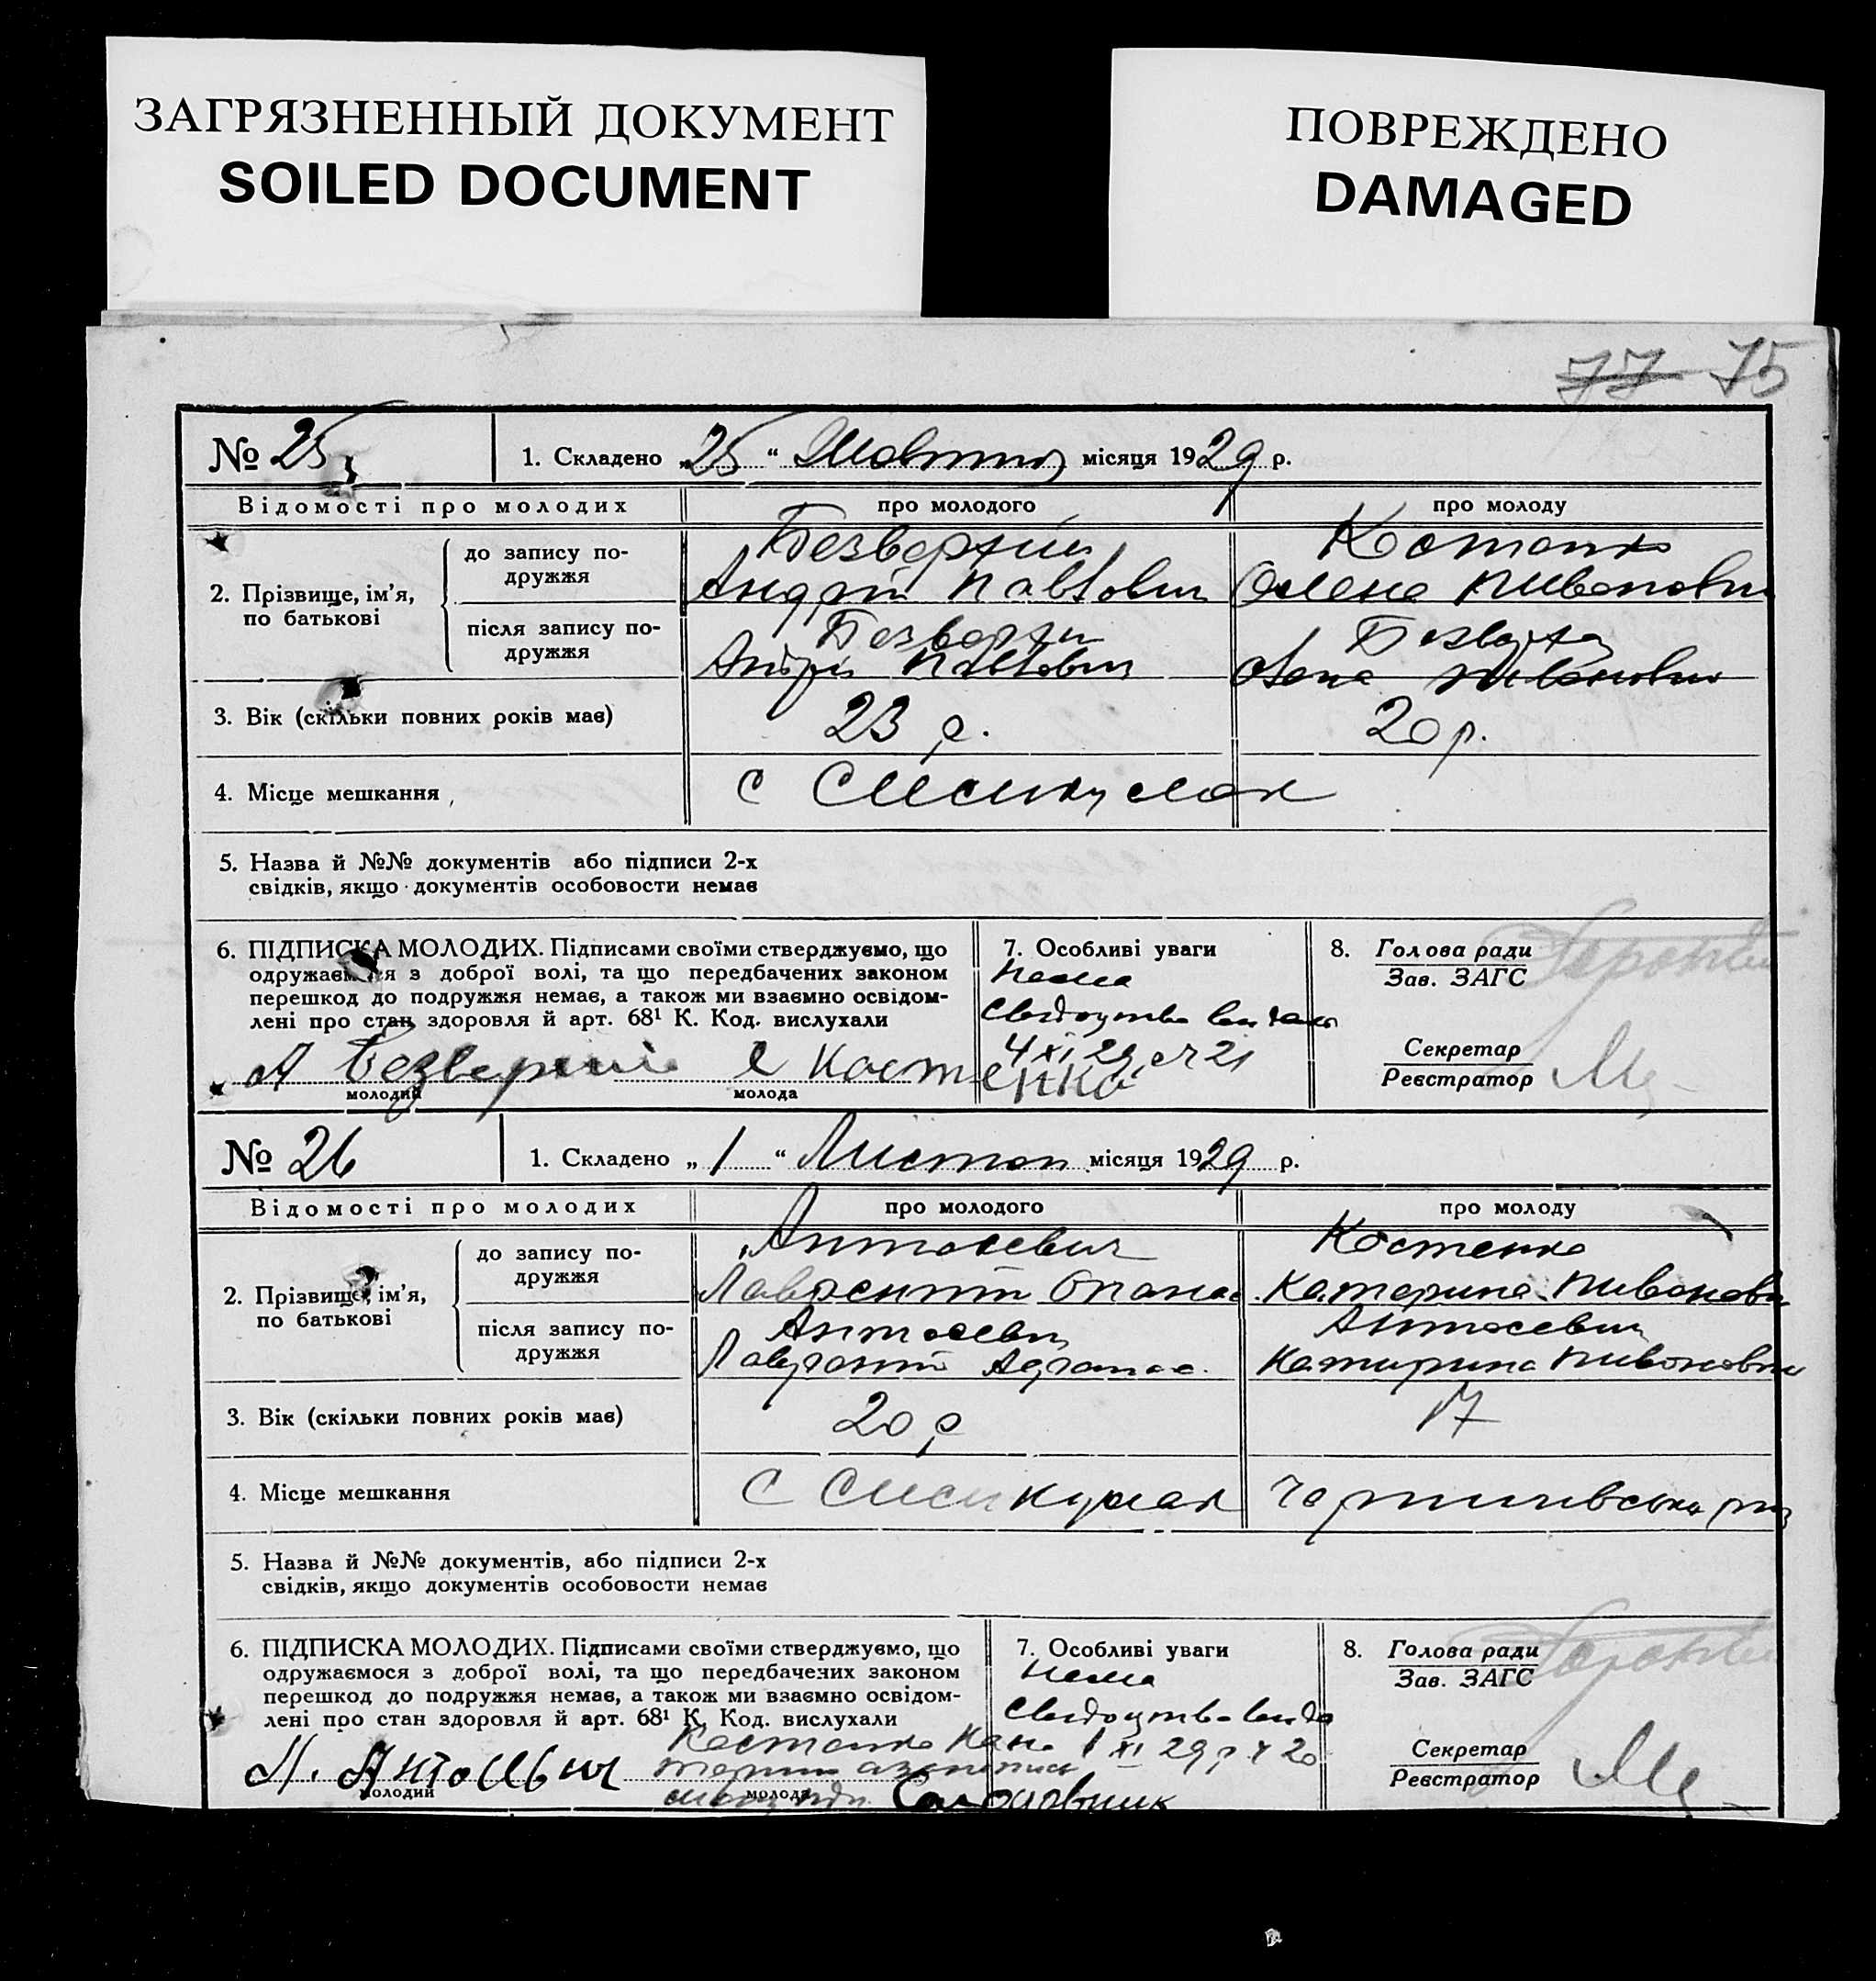 ЗАГРЯЗНЕННЫЙ ДОКУМЕНТ
SOILED DOCUMENT
ПОВРЕЖДЕНО
DAMAGED
77 75
№ 25
1. Складено „25“ Жовтня місяця 1929 р.
Відомості про молодих
про молодого
про молоду
2. Прізвище, ім'я,
по батькові
до запису по-
дружжя
Безверхий
Андрій Павлович
Костенко
Олена Пивоновн
після запису по-
дружжя
Безверхи
Андрій Павлович
Безверха
Олена Пивоновн
3. Вік (скільки повних років має)
23 р.
20 р.
4. Місце мешкання
с
5. Назва й №№ документів або підписи 2-х
свідків, якщо документів особовости немає
6. ПІДПИСКА МОЛОДИХ. Підписами своїми стверджуємо, що
одружаємося з доброї волі, та що передбачених законом
перешкод до подружжя немає, а також ми взаємно освідом-
лені про стан здоровля й арт. 68¹ К. Код. вислухали
А Безверхий
молодий
Костенко
молода
7. Особливі уваги
нема
Свідоцтво видано
4 XI 29 21
8. Голова ради
Зав. ЗАГС
Секретар
Реєстратор
№ 26
1. Складено „1“ Листоп місяця 1929 р.
Відомості про молодих
про молодого
про молоду
2. Прізвище, ім'я,
по батькові
до запису по-
дружжя
Антосевич
Лаврентий Опанас
Костенко
Катерина Пивоновн
після запису по-
дружжя
Антосевич
Лаврентий
Антосевич
Катирина Пивоновн
3. Вік (скільки повних років має)
20 р
17
4. Місце мешкання
с
5. Назва й №№ документів, або підписи 2-х
свідків, якщо документів особовости немає
6. ПІДПИСКА МОЛОДИХ. Підписами своїми стверджуємо, що
одружаємося з доброї волі, та що передбачених законом
перешкод до подружжя немає, а також ми взаємно освідом-
лені про стан здоровля й арт. 68¹ К. Код. вислухали
Л. Антосевич
молодий
Костенко
молода
7. Особливі уваги
нема
Свідоцтво видо
1 XI 29 р 20
8. Голова ради
Зав. ЗАГС
Секретар
Реєстратор